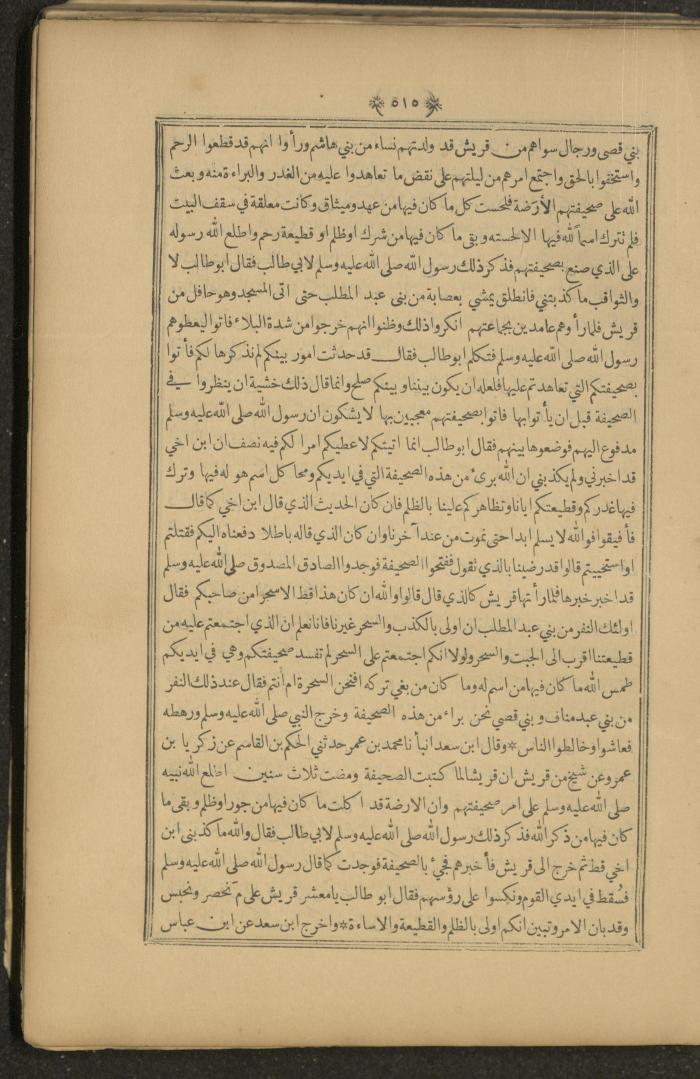 ٥١٥
بني قصي ورجال سواهم من قريش قد ولدتهم نساء من بني هاشم ورأوا انهم قد قطعوا الرحم
واستخفوا بالحق واجتمع امرهم من ليلتهم على نقض ما تعاهدوا عليه من الغدر والبراءة منه وبعث
الله على صحيفتهم الأرضة فلحست كل ما كان فيها من عهد وميثاق وكانت معلقة في سقف البيت
فلم تترك اسماً لله فيها الا لحسته وبقي ما كان فيها من شرك او ظلم او قطيعة رحم واطلع الله رسوله
على الذي صنع بصحيفتهم فذكر ذلك رسول الله صلى الله عليه وسلم لابي طالب فقال ابو طالب لا
والثواقب ما كذبتني فانطلق يمشي بعصابة من بنى عبد المطلب حتى اتى المسجد وهو حافل من
قريش فلما رأوهم عامدين بجماعتهم انكروا ذلك وظنوا انهم خرجوا من شدة البلاء فاتوا ليعطوهم
رسول الله صلى الله عليه وسلم فتكلم ابو طالب فقال قد حدثت امور بينكم لم نذكرها لكم فأتوا
بصحيفتكم التي تعاهدتم عليها فلعله ان يكون بيننا وبينكم صلح وانما قال ذلك خشية ان ينظروا في
الصحيفة قبل ان يأتوا بها فاتوا بصحيفتهم معجبين بها لا يشكون ان رسول الله صلى الله عليه وسلم
مدفوع اليهم فوضعوها بينهم فقال ابو طالب انما اتيتكم لاعطيكم امرا لكم فيه نصف ان ابن اخي
قد اخبرني ولم يكذبني ان الله برئ من هذه الصحيفة التي في ايديكم ومحا كل اسم هو له فيها وترك
فيها غدركم وقطيعتكم ايانا وتظاهركم علينا بالظلم فان كان الحديث الذي قال ابن اخي كما قال
فأفيقوا فوالله لا يسلم ابدا حتى نموت من عند آخرنا وان كان الذي قاله باطلا دفعناه اليكم فقتلتم
او استحييتم قالوا قد رضينا بالذي نقول ففتحوا الصحيفة فوجدوا الصادق المصدوق صلى الله عليه وسلم
قد اخبر خبرها فلما رأتها قريش كالذي قال قالوا والله ان كان هذا قط الا سحرا من صاحبكم فقال
اولئك النفر من بني عبد المطلب ان اولى بالكذب والسحر غيرنا فانا نعلم ان الذي اجتمعتم عليه من
قطيعتنا اقرب الى الجبت والسحر ولولا انكم اجتمعتم على السحر لم تفسد صحيفتكم وهي في ايديكم
طمس الله ما كان فيها من اسم له وما كان من بغي تركه افنحن السحرة ام انتم فقال عند ذلك النفر
من بني عبد مناف وبني قصي نحن براء من هذه الصحيفة وخرج النبي صلى الله عليه وسلم ورهطه
فعاشوا وخالطوا الناس * وقال ابن سعد انبأنا محمد بن عمر حدثني الحكم بن القاسم عن زكريا بن
عمرو عن شيخ من قريش ان قريشا لما كتبت الصحيفة ومضت ثلاث سنين اطلع الله نبيه
صلى الله عليه وسلم على امر صحيفتهم وان الارضة قد اكلت ما كان فيها من جور او ظلم وبقى ما
كان فيها من ذكر الله فذكر ذلك رسول الله صلى الله عليه وسلم لابي طالب فقال والله ما كذبنى ابن
اخي قط ثم خرج الى قريش فأخبرهم فجيء بالصحيفة فوجدت كما قال رسول الله صلى الله عليه وسلم
فسُقط في ايدي القوم ونكسوا على رؤسهم فقال ابو طالب يا معشر قريش على مَ نحصر ونحبس
وقد بان الامر وتبين انكم اولى بالظلم والقطيعة والاساءة * واخرج ابن سعد عن ابن عباس